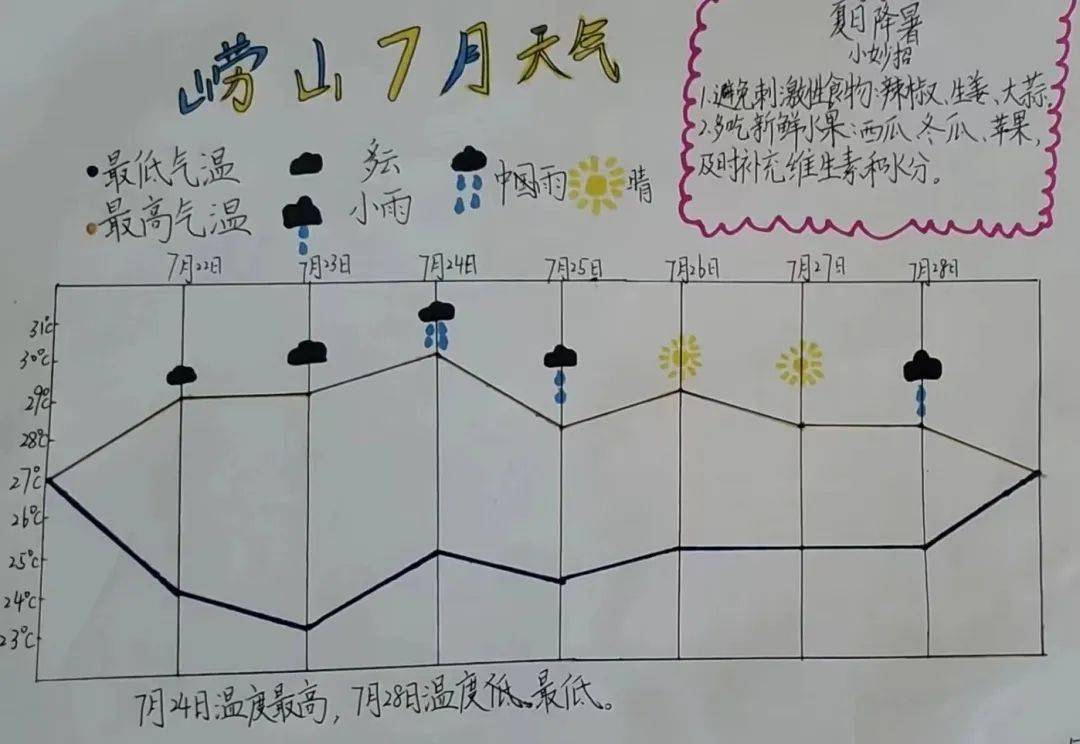 崂山7月天气
夏日降暑
小妙招
1.避免刺激性食物:辣椒、生姜、大蒜。
2.多吃新鲜水果:西瓜、冬瓜、苹果,
及时补充维生素和水分。
最低气温 多云 中国雨 晴
最高气温 小雨
7月22日 7月23日 7月24日 7月25日 7月26日 7月27日 7月28日
31℃
30℃
29℃
28℃
27℃
26℃
25℃
24℃
23℃
7月24日温度最高,7月28日温度低。最低。